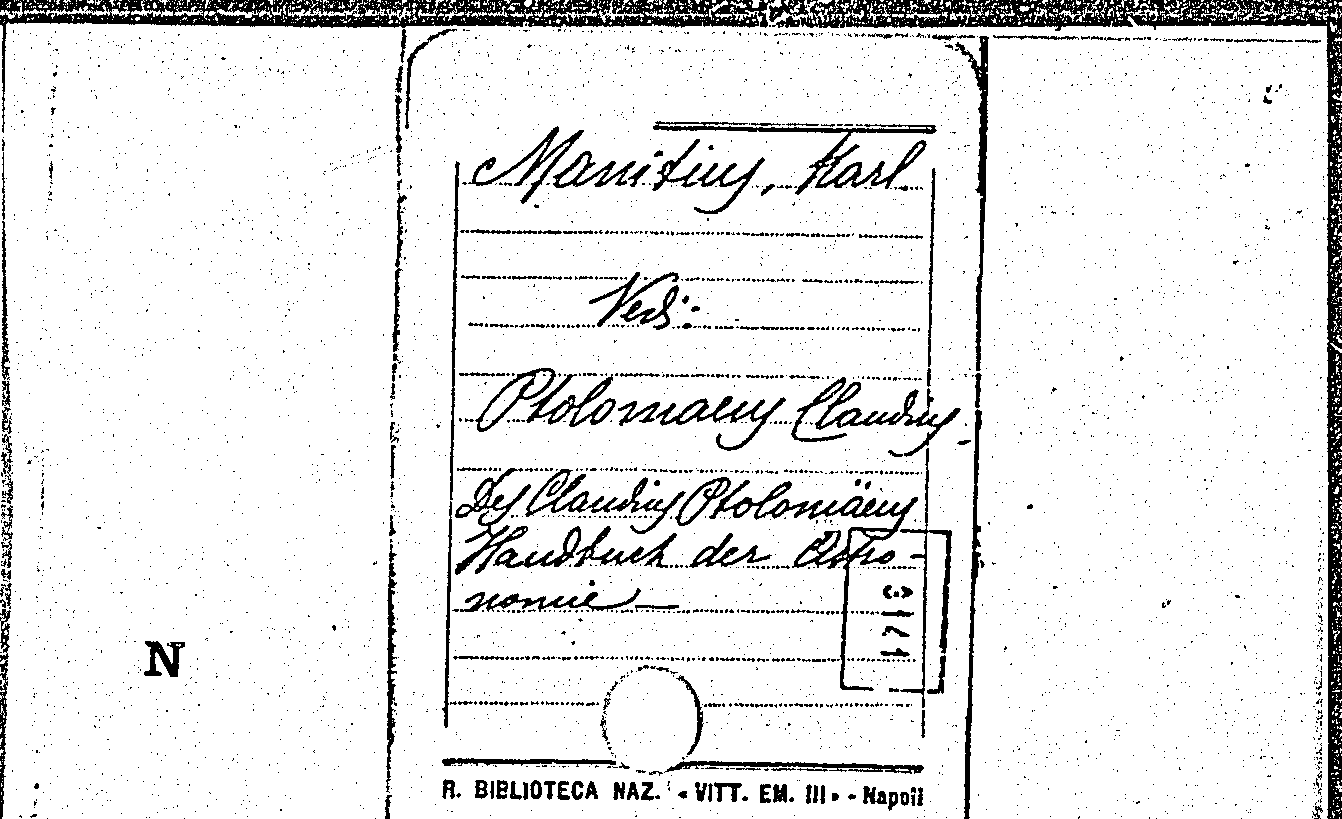 Manitius, Karl
Vedi:
Ptolomaeus Claudius.
Des Claudius Ptolomäeus
Handbuch der Astro-
nomie
N
R. BIBLIOTECA NAZ. « VITT. EM. III » - Napoli